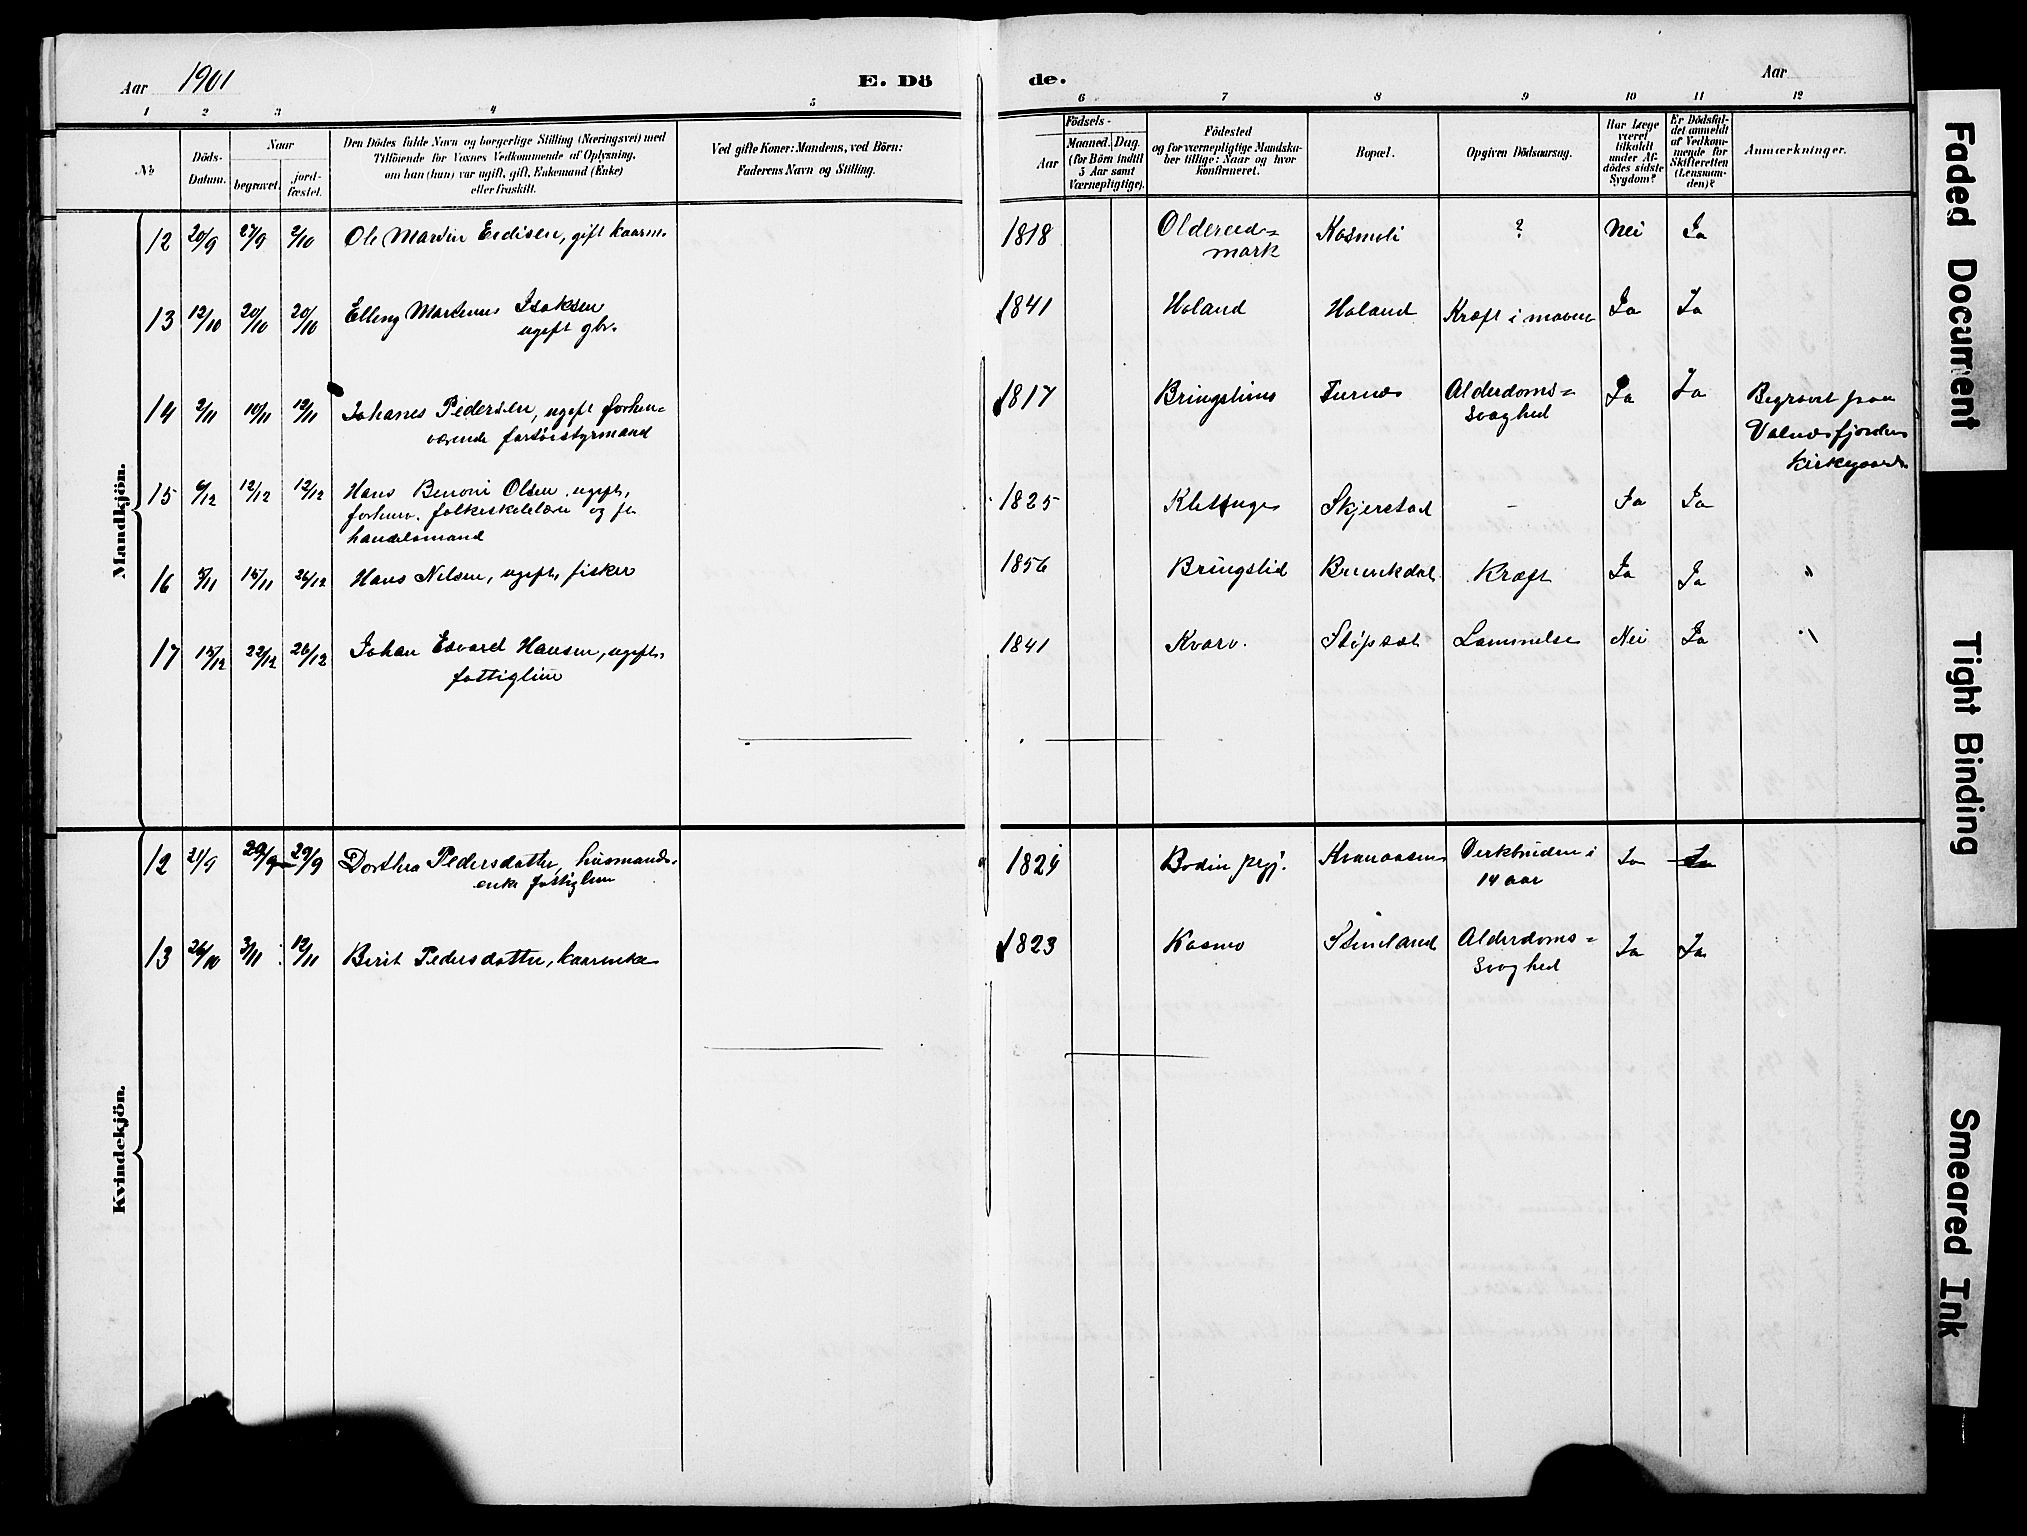 Aar 1901
E. Dö
de.
Aar
1 2 3 4 5 6 7 8 9 10 11 12
No
Döds-
Datum.
Naar
begravet.
jord-
fæstet.
Den Dödes fulde Navn og borgerlige Stilling (Næringsvei) med
Tilföiende for Voxnes Vedkommende af Oplysning,
om han (hun) var ugift, gift, Enkemand (Enke)
eller fraskilt.
Ved gifte Koner: Mandens, ved Börn:
Faderens Navn og Stilling.
Födsels-
Aar
Maaned. Dag.
(for Börn indtil
5 Aar samt
Værnepligtige).
Födested
og for værnepligtige Mandska-
ber tillige: Naar og hvor
konfirmeret.
Bopæl.
Opgiven Dödsaarsag.
Har Læge
været
tilkaldt
under Af-
dödes sidste
Sygdom?
Er Dödsfal-
det anmeldt
af Vedkom-
mende for
Skifteretten
(Lensman-
den)?
Anmærkninger.
Mandkjön.
12 20/9 27/9 2/10 Ole Martin Endisen, gift kaarm. 1818 Oldereid= Kosmoli ? Nei Ja
mark
13 12/10 20/10 20/10 Elling Martinus Isaksen 1841 Holand Holand Kræft i maven Ja Ja
ugift gbr.
14 2/11 10/11 12/11 Johanes Pedersen, ugift forhen= 1817 Bringslims Furnes Alderdoms= Ja Ja Begravet paa
værende fartøistyrmand svaghed Valnesfjordens
kirkegaard.
15 6/12 12/12 12/12 Hans Benoni Olsen, ugift, 1825 Skjerstad - Ja Ja
forhenv. folkeskolelærer og fh.
handelsmand
16 5/11 15/11 26/12 Hans Nilsen, ugift, fisker 1856 Bringslid Kræft Ja Ja "
17 15/12 22/12 26/12 Johan Edvard Hansen, ugift, 1841 Kvarv. Støpset Lammelse Nei Ja "
fattiglem
Kvindekjön.
12 21/9 29/9 29/9 Dorthea Pedersdatter, husmands- 1826 Bodin prgj. Kvanaasen Verkbruden i Ja Ja
enke fattiglem 14 aar
13 26/10 3/11 12/11 Berit Pedersdatter, kaarenke 1823 Kosmo Steneland Alderdoms= Ja Ja
svaghed
Faded Document
Tight Binding
Smeared Ink